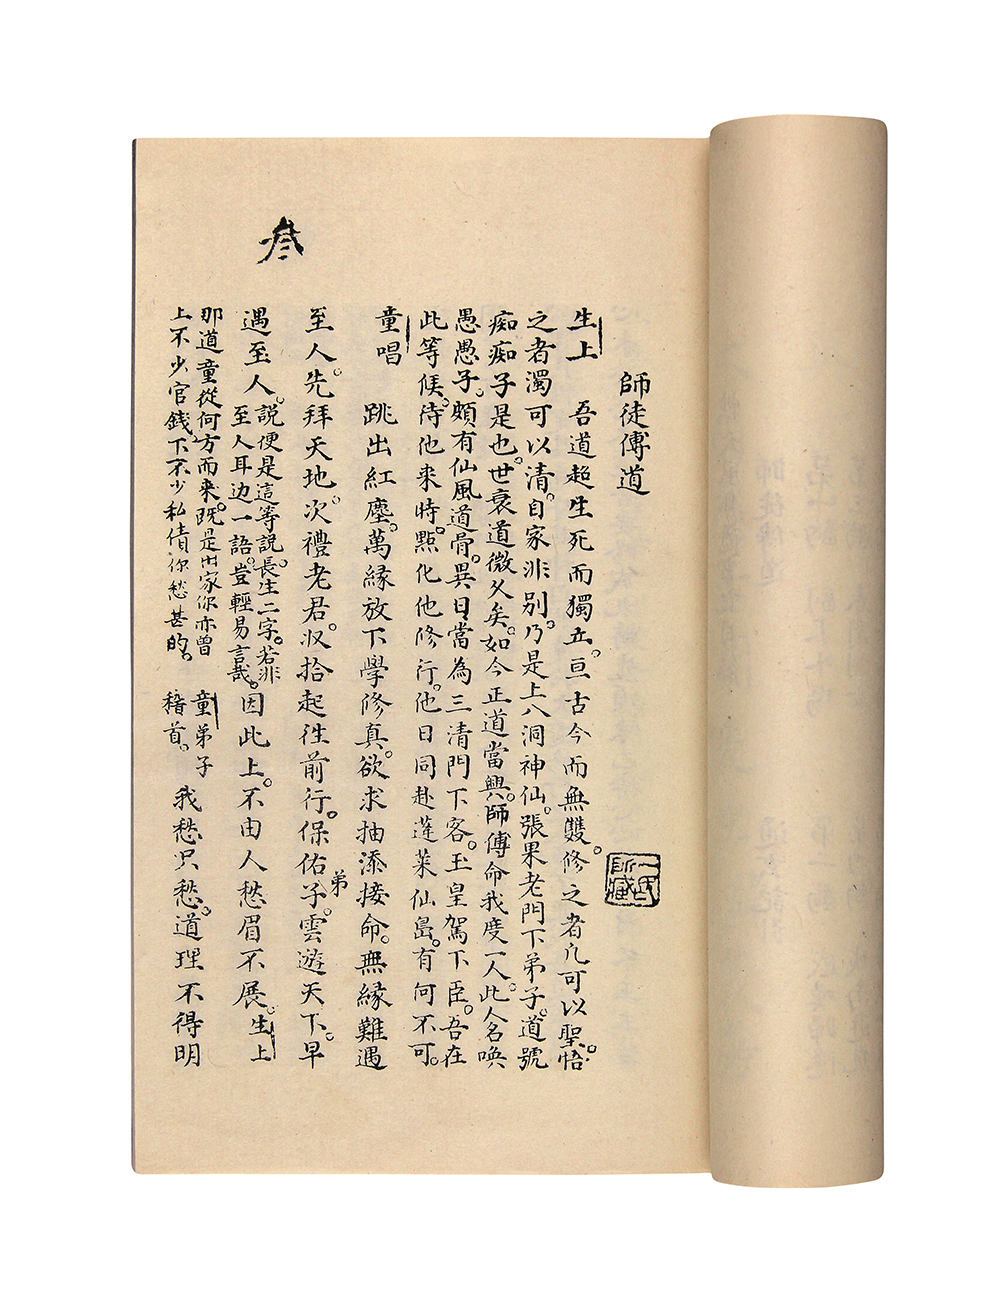 叄
師徒傳道
生上　吾道超生死而獨立。亘古今而無雙。修之者凡可以聖。悟
之者濁可以清。自家非别。乃是上八洞神仙。張果老門下弟子。道號
痴痴子是也。世衰道微久矣。如今正道當興。師傅命我度一人。此人名喚
愚愚子。頗有仙風道骨。異日當為三清門下客。玉皇駕下臣。吾在
此等候。待他来時。點化他修行。他日同赴蓬萊仙島。有何不可。
童唱　跳出紅塵。萬緣放下學修真。欲求抽添接命。無緣難遇
至人。先拜天地。次禮老君。收拾起徃前行。保佑弟子。雲遊天下。早
遇至人。説便是這等説。長生二字。若非至人耳边一語。豈輕易言哉。因此上。不由人愁眉不展。生上
那道童從何方而来。既是出家你亦曾
上不少官錢。下不少私債你愁甚的。童弟子稽首。我愁只愁。道理不得明
氏
所藏